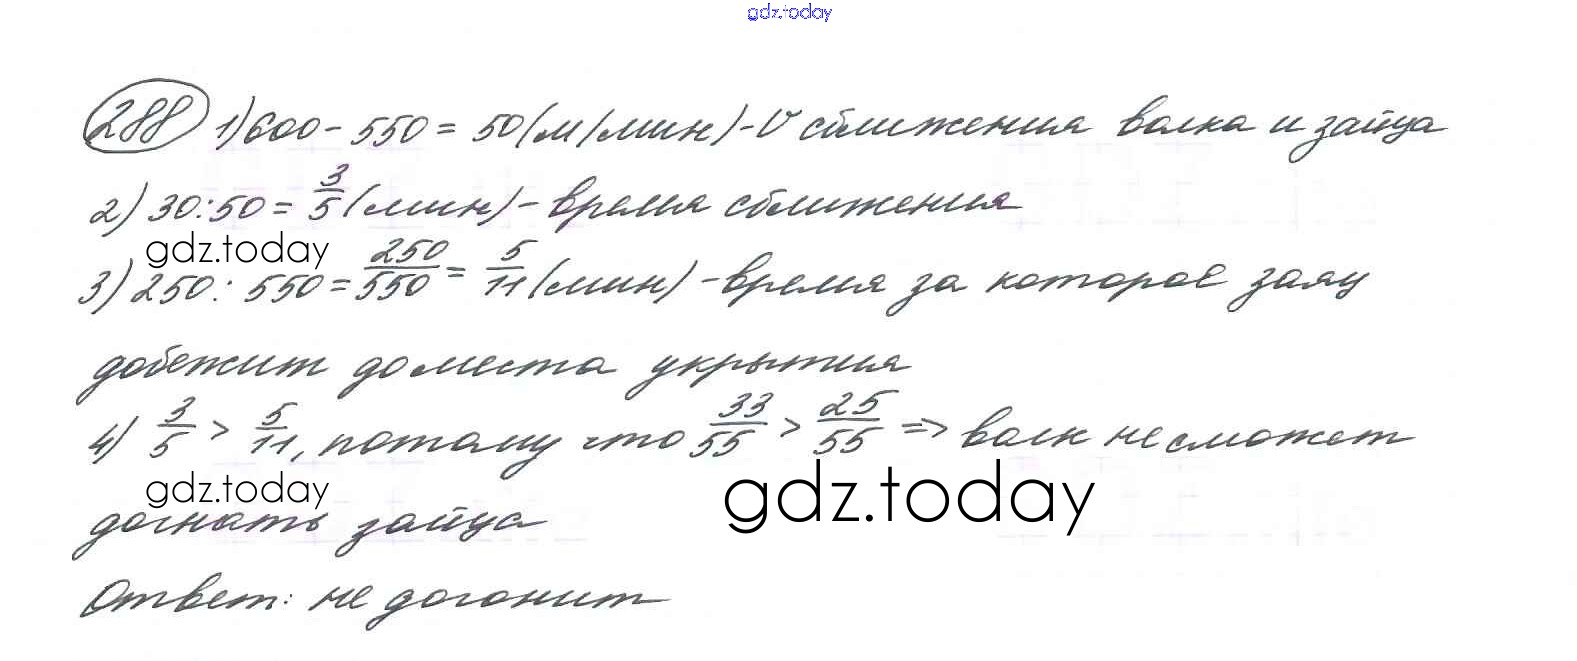 gdz.today
288 1) 600 - 550 = 50 (м/мин) - V сближения волка и зайца
2) 30:50 = 3/5 (мин) - время сближения
gdz.today
3) 250 : 550 = 250/550 = 5/11 (мин) - время за которое заяц
добежит до места укрытия
4) 3/5 > 5/11, потому что 33/55 > 25/55 => волк не сможет
gdz.today gdz.today
догнать зайца
Ответ: не догонит